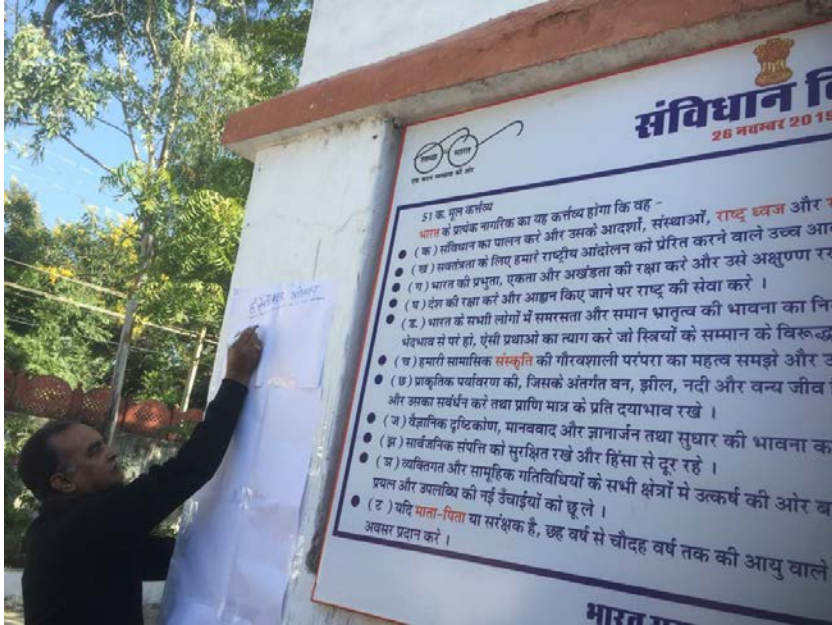 संविधान
26 नवम्बर 2019
स्वच्छ भारत
एक कदम स्वच्छता की ओर
51 क. मूल कर्त्तव्य
भारत के प्रत्येक नागरिक का यह कर्त्तव्य होगा कि वह -
(क) संविधान का पालन करे और उसके आदर्शों, संस्थाओं, राष्ट्र ध्वज और
(ख) सवतंत्रता के लिए हमारे राष्ट्रीय आंदोलन को प्रेरित करने वाले उच्च
(ग) भारत की प्रभुता, एकता और अखंडता की रक्षा करे और उसे अक्षुण्ण
(घ) देश की रक्षा करे और आह्वान किए जाने पर राष्ट्र की सेवा करे ।
(ड.) भारत के सभी लोगों में समरसता और समान भ्रातृत्व की भावना का
भेदभाव से परे हो, ऐसी प्रथाओं का त्याग करे जो स्त्रियों के सम्मान के विरूद्ध
(च) हमारी सामासिक संस्कृति की गौरवशाली परंपरा का महत्व समझे और
(छ) प्राकृतिक पर्यावरण की, जिसके अंतर्गत वन, झील, नदी और वन्य जीव
और उसका सवंर्धन करे तथा प्राणि मात्र के प्रति दयाभाव रखे ।
(ज) वैज्ञानिक दृष्टिकोण, मानववाद और ज्ञानार्जन तथा सुधार की भावना
(झ) सार्वजनिक संपत्ति को सुरक्षित रखे और हिंसा से दूर रहे ।
(ञ) व्यक्तिगत और सामूहिक गतिविधियों के सभी क्षेत्रों मे उत्कर्ष की ओर
प्रयत्न और उपलब्धि की नई उँचाईयों को छू ले ।
(ट) यदि माता-पिता या सरंक्षक है, छह वर्ष से चौदह वर्ष तक की आयु वाले
अवसर प्रदान करे ।
भारत